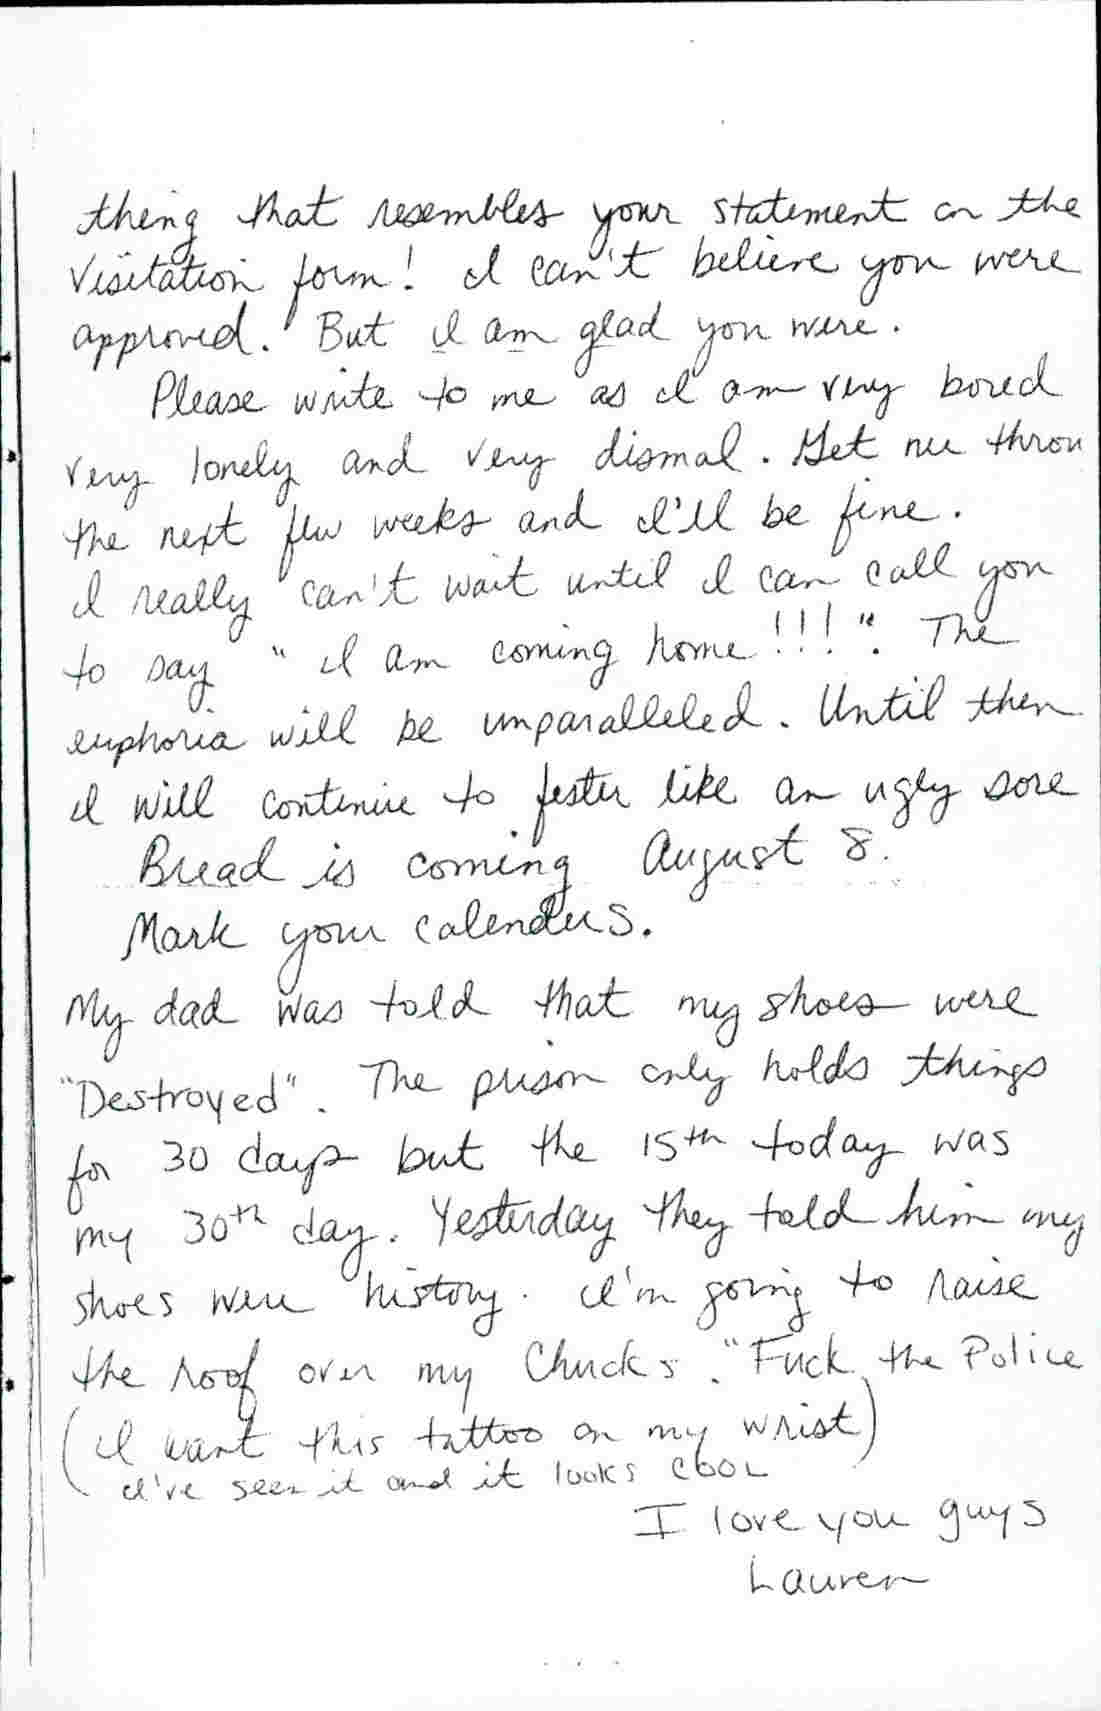 thing that resembles your statement on the
Visitation form! I can't believe you were
approved. But I am glad you were.
Please write to me as I am very bored
very lonely and very dismal. Get me throu
the next few weeks and I'll be fine.
I really can't wait until I can call you
to say "I am coming home!!!". The
euphoria will be unparalleled. Until then
I will continue to fester like an ugly sore
Bread is coming August 8.
Mark your calenders.
My dad was told that my shoes were
"Destroyed". The prison only holds things
for 30 days but the 15th today was
my 30th day. Yesterday they told him my
shoes were history. I'm going to raise
the roof over my Chucks. "Fuck the Police
(I want this tattoo on my wrist)
I've seen it and it looks cool
I love you guys
Lauren